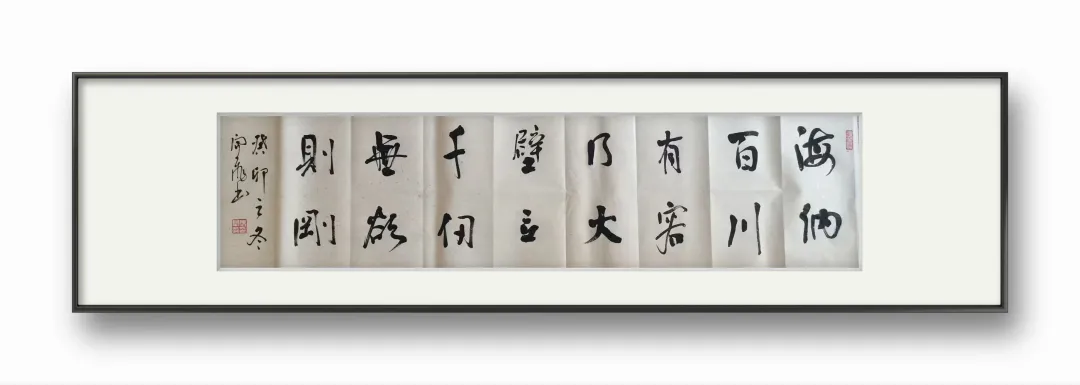 海納
百川
有容
乃大
壁立
千仞
無欲
則剛
癸卯之冬
书